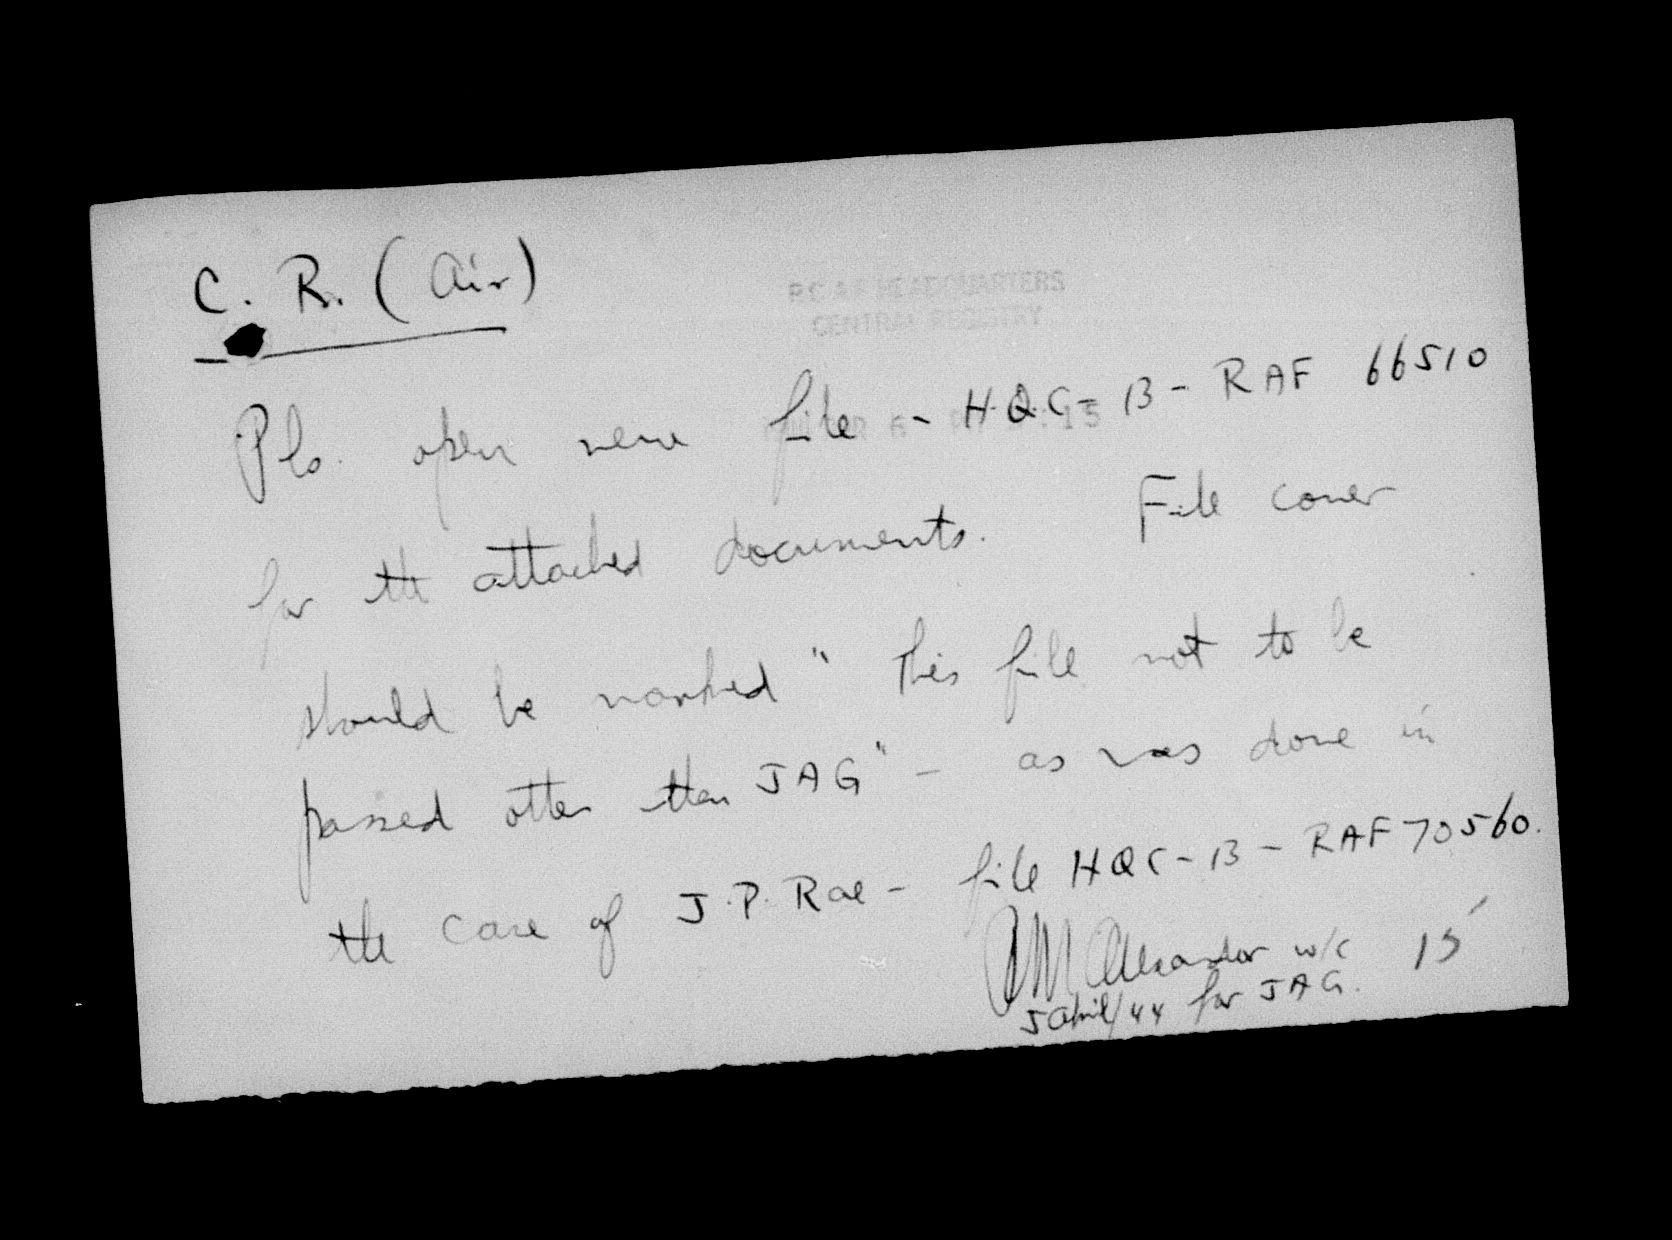 C. R. (Air)
RCAF HEADQUARTERS
CENTRAL REGISTRY
Pls. open new file - HQC-13-RAF 66510
for the attached documents. File cover
should be marked "This file not to be
passed other than JAG" - as was done in
the case of J.P. Rae - file HQC-13-RAF 70560.
Alexander w/c 15
5 April/44 for JAG.